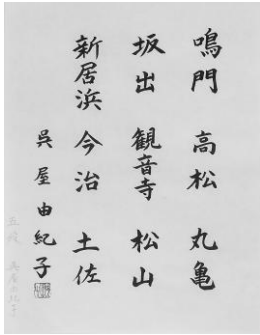 鳴門 高松 丸亀
坂出 観音寺 松山
新居浜 今治 土佐
呉屋由紀子